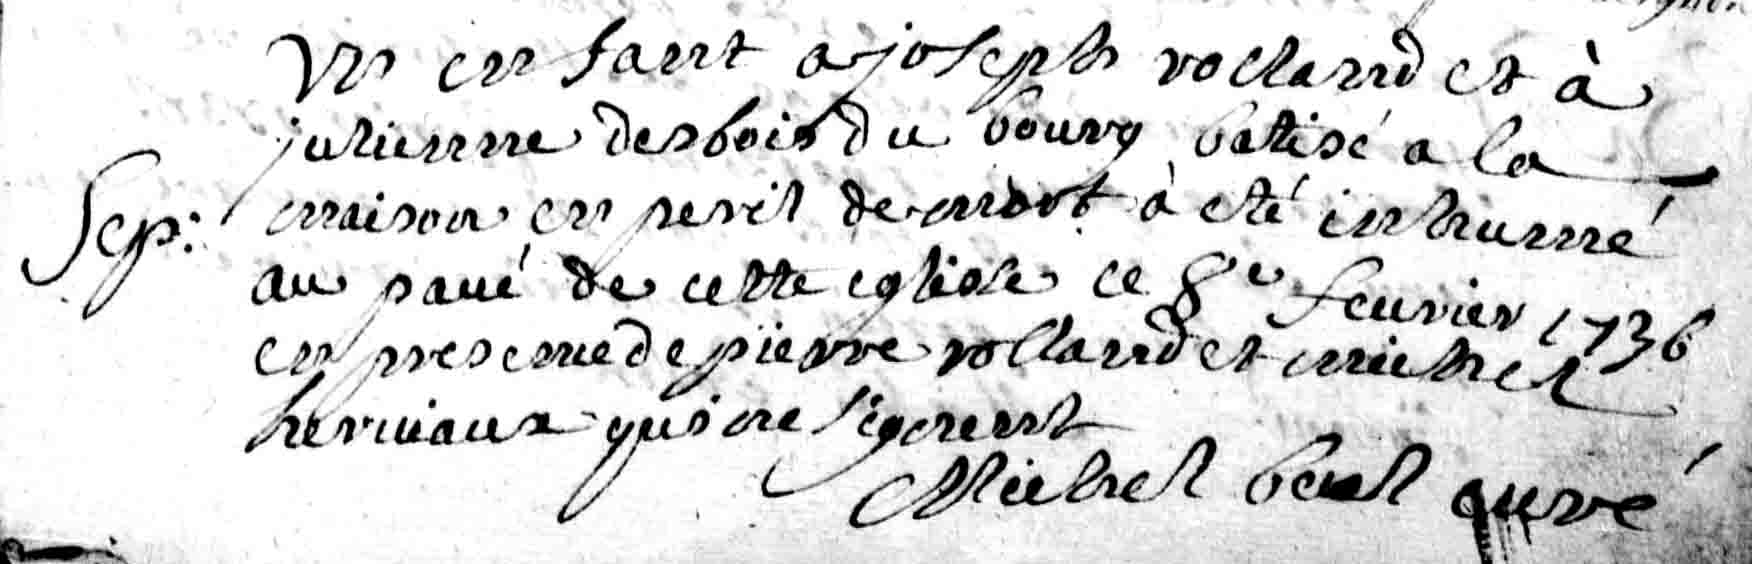 Un enfant a joseph rolland et à
julienne desbois du bourg batisé a la
Sep: maison en peril de mort à eté inhumé
au paué de cette eglise ce 8e feurier 1736
en presence de pierre rolland et michel
heruiaux qui ne signent
Michel curé